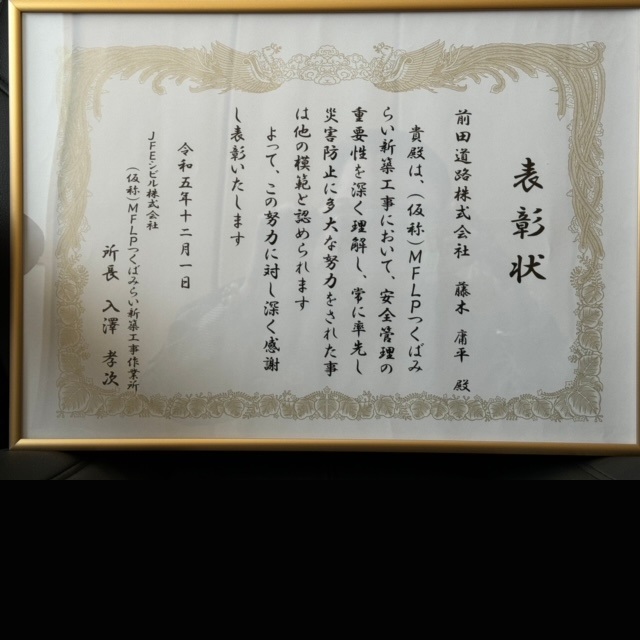 表彰状
前田道路株式会社 藤木 庸平 殿
貴殿は、(仮称)MFLPつくばみ
らい新築工事において、安全管理の
重要性を深く理解し、常に率先し
災害防止に多大な努力をされた事
は他の模範と認められます
よって、この努力に対し深く感謝
し表彰いたします
令和五年十二月一日
JFEシビル株式会社
(仮称)MFLPつくばみらい新築工事作業所
所長 入澤 孝次